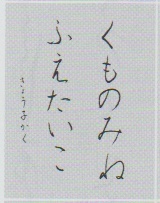 くものみね
ふえたいこ
きょうかく